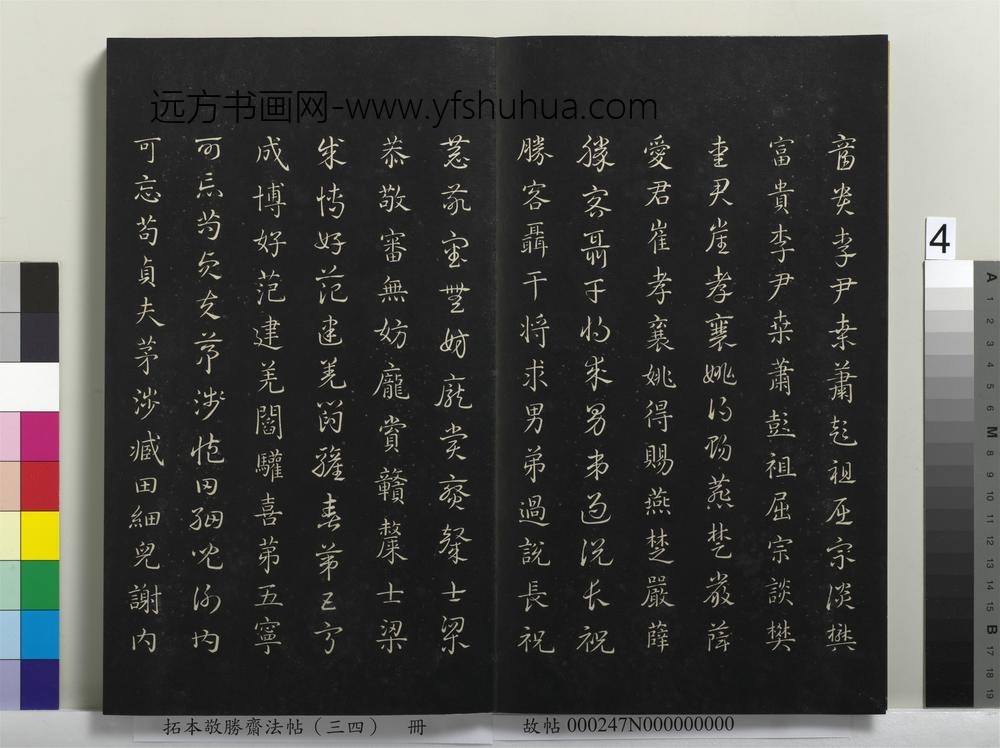 远方书画网-www.yfshuhua.com
富貴李尹桑蕭彭祖屈宗談樊
富貴李尹桑蕭彭祖屈宗談樊
愛君崔孝襄姚得賜燕楚嚴薛
愛君崔孝襄姚得賜燕楚嚴薛
勝客聶干将求男弟過說長祝
勝客聶干将求男弟過說長祝
恭敬審無妨龐賞贛士梁
恭敬審無妨龐賞贛士梁
成博好范建羌閻驩喜第五寧
成博好范建羌閻驩喜第五寧
可忘苟貞夫茅涉臧田細兒謝内
可忘苟貞夫茅涉臧田細兒謝内
4
A 1 2 3 4 5 6 M 8 9 10 11 12 13 14 15 B 17 18 19
拓本敬勝齋法帖（三四） 冊
故帖 000247N000000000